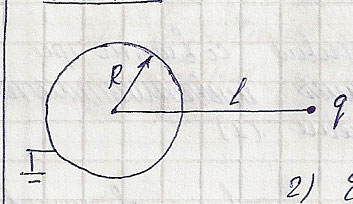 R
l
q
2)